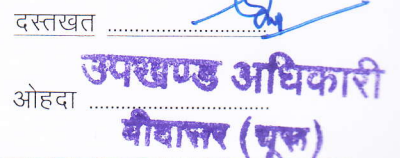 दस्तखत ..............................
उपखण्ड अधिकारी
ओहदा ..............................
बीदासर (चूरू)